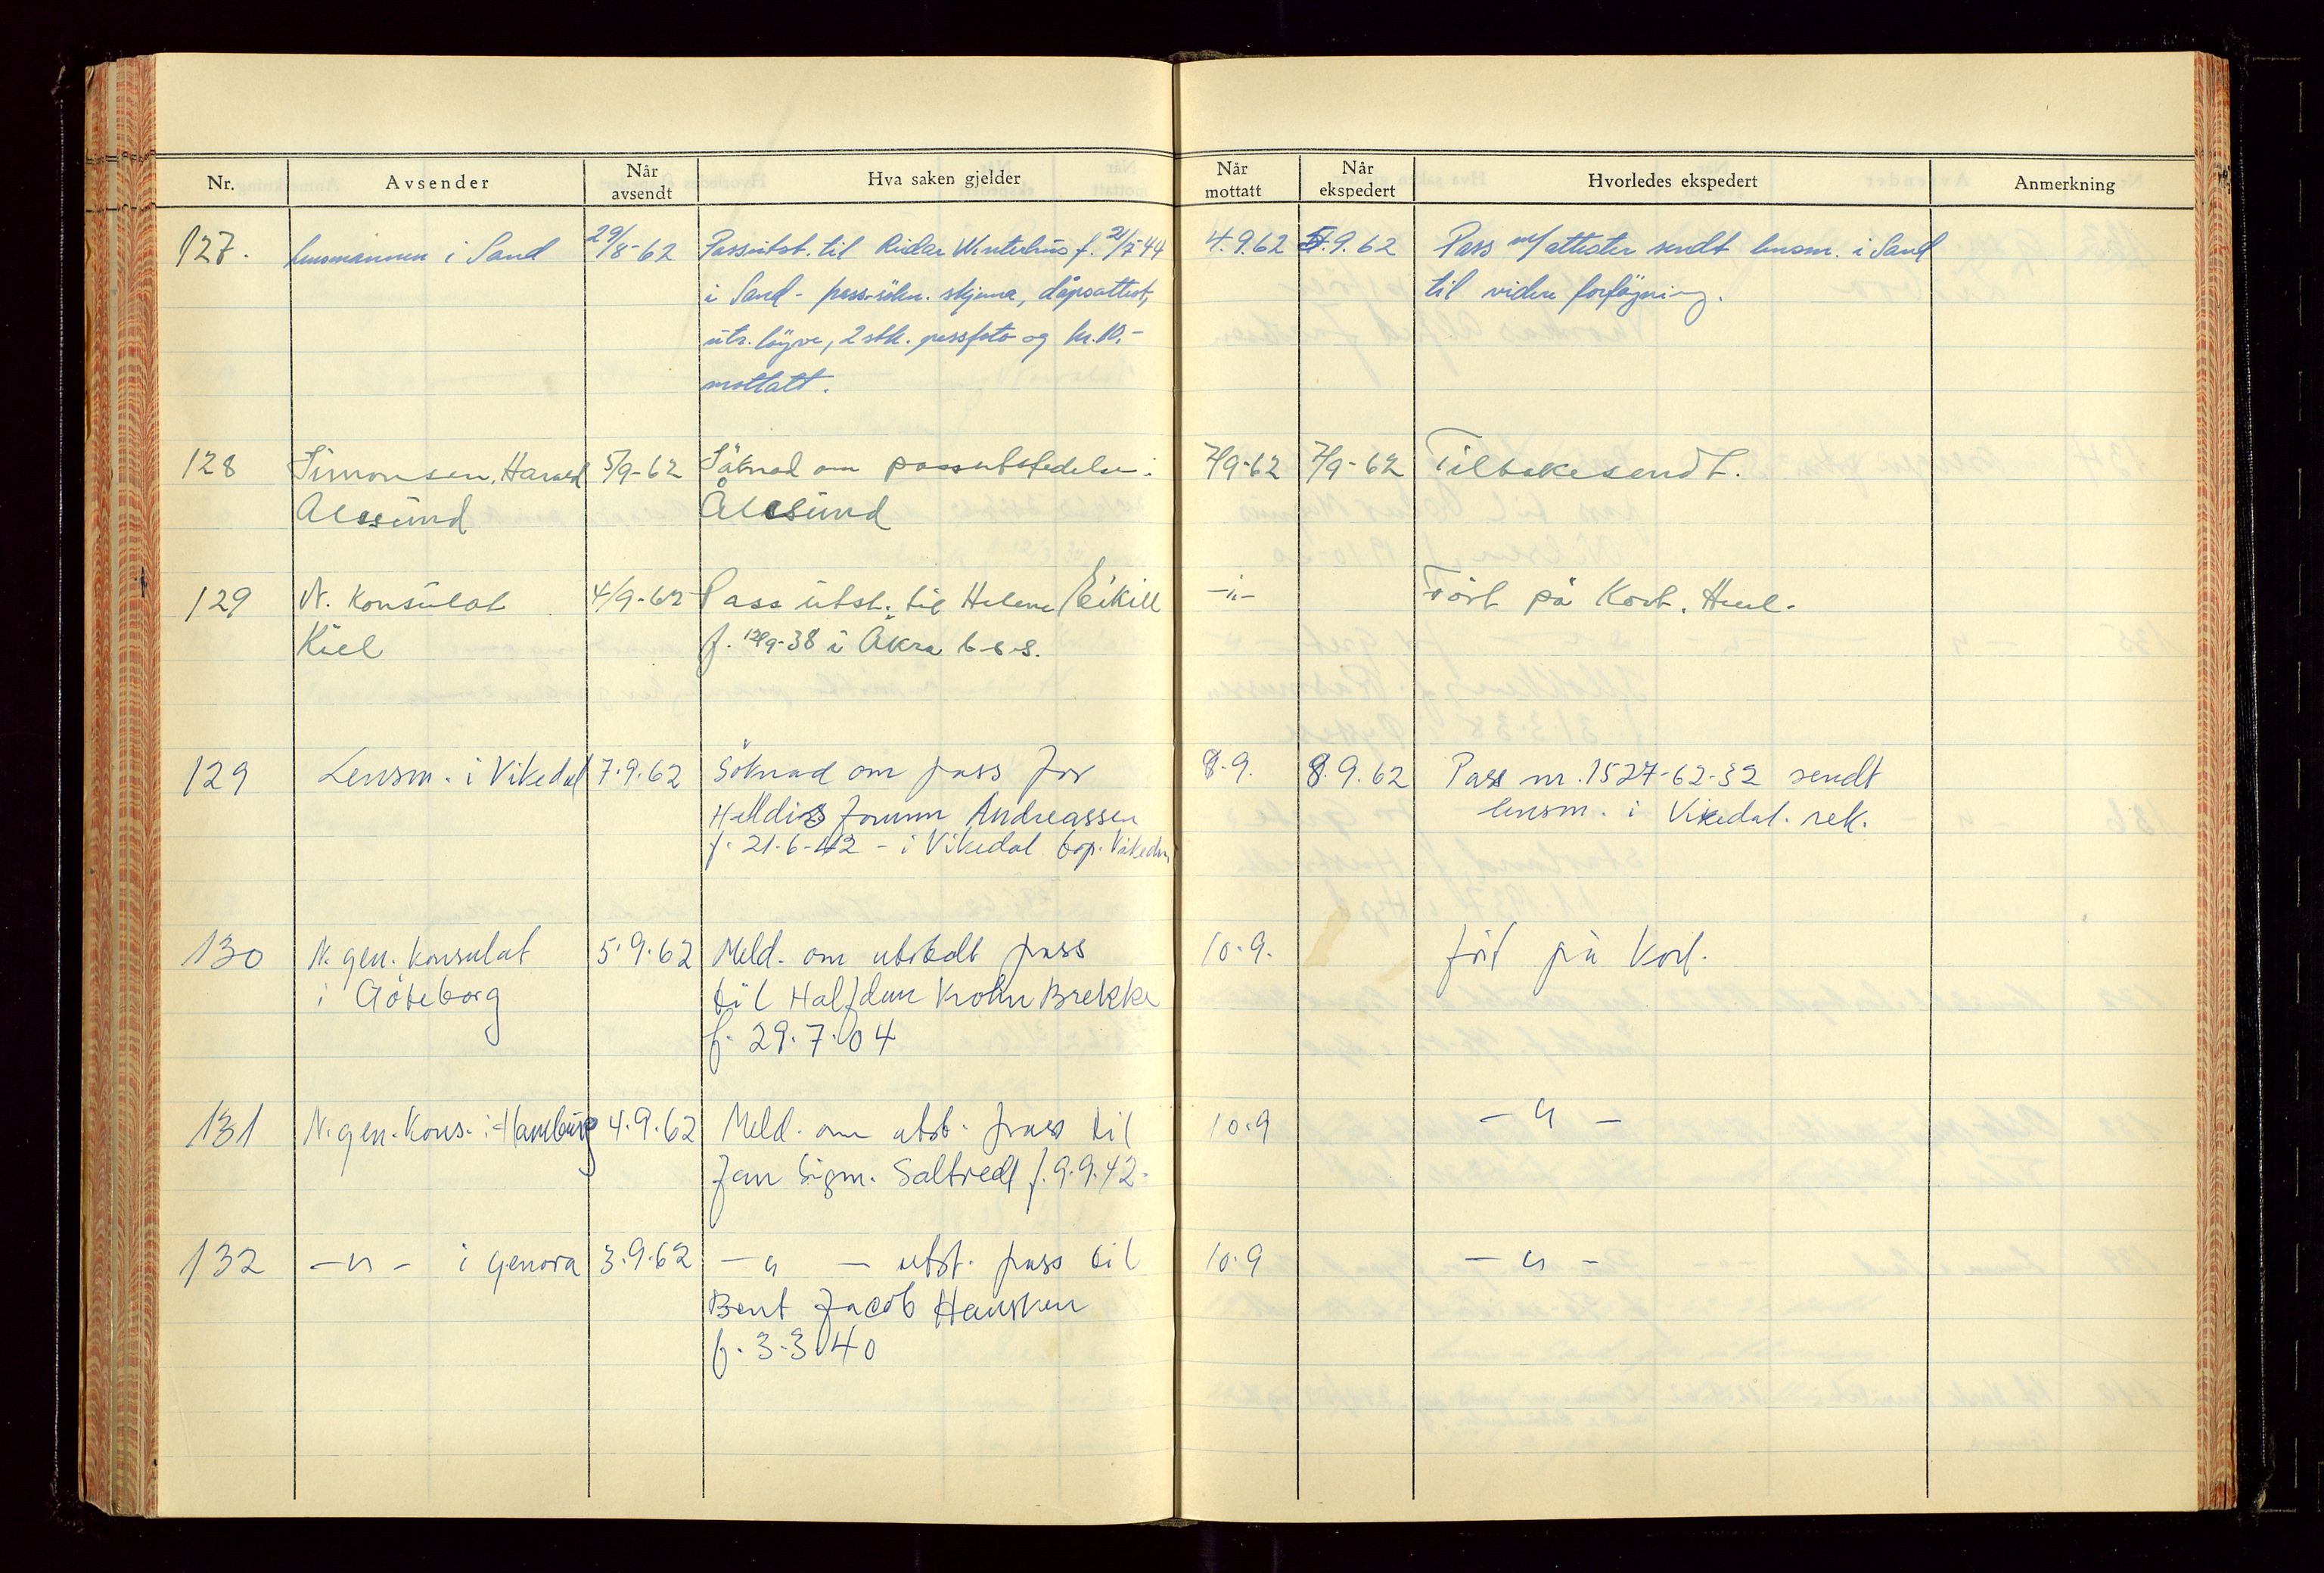 Nr.
Avsender
Når avsendt
Hva saken gjelder
Når mottatt
Når ekspedert
Hvorledes ekspedert
Anmerkning
127. Lensmannen i Sand 29/8-62 Passutst. til Reidar Vinterhus f. 21/7-44 4.9.62 5.9.62 Pass m/attester sendt lensm. i Sand
i Sand - pass-søkn. skjema, dåpsattest, til videre forføyning.
utr. løyve, 2 stk. passfoto og kr. 10,-
mottatt.
128 Simonsen, Harald 5/9-62 Söknad om passutstedelse: 7/9-62 7/9-62 Tilbakesendt.
Alesund Ålesund
129 N. Konsulat 4/9-62 Pass utst. til Helene Eikill -"- Fört på Kort.
Kiel f. 12/9-38 i Åkra b-s-s.
129 Lensm. i Vikedal 7.9.62 Söknad om pass for 8.9. 8.9.62 Pass nr. 1527-62-32 sendt
Andreassen lensm. i Vikedal. rek.
f. 21-6-42 - i Vikedal bop. Vikedal
130 N. gen. konsulat 5.9.62 Meld. om utstedt pass 10.9. ført på kort.
i Göteborg til Halfdan Krohn Brekke
f. 29.7.04
131 N. gen. Kons. i Hamburg 4.9.62 Meld. om utst. pass til 10.9 - " -
Jan Sigm. Saltvedt f. 9.9.42.
132 - " - i Genova 3.9.62 - " - utst. pass til 10.9 - " -
Bent Jacob Hansken
f. 3-3-40